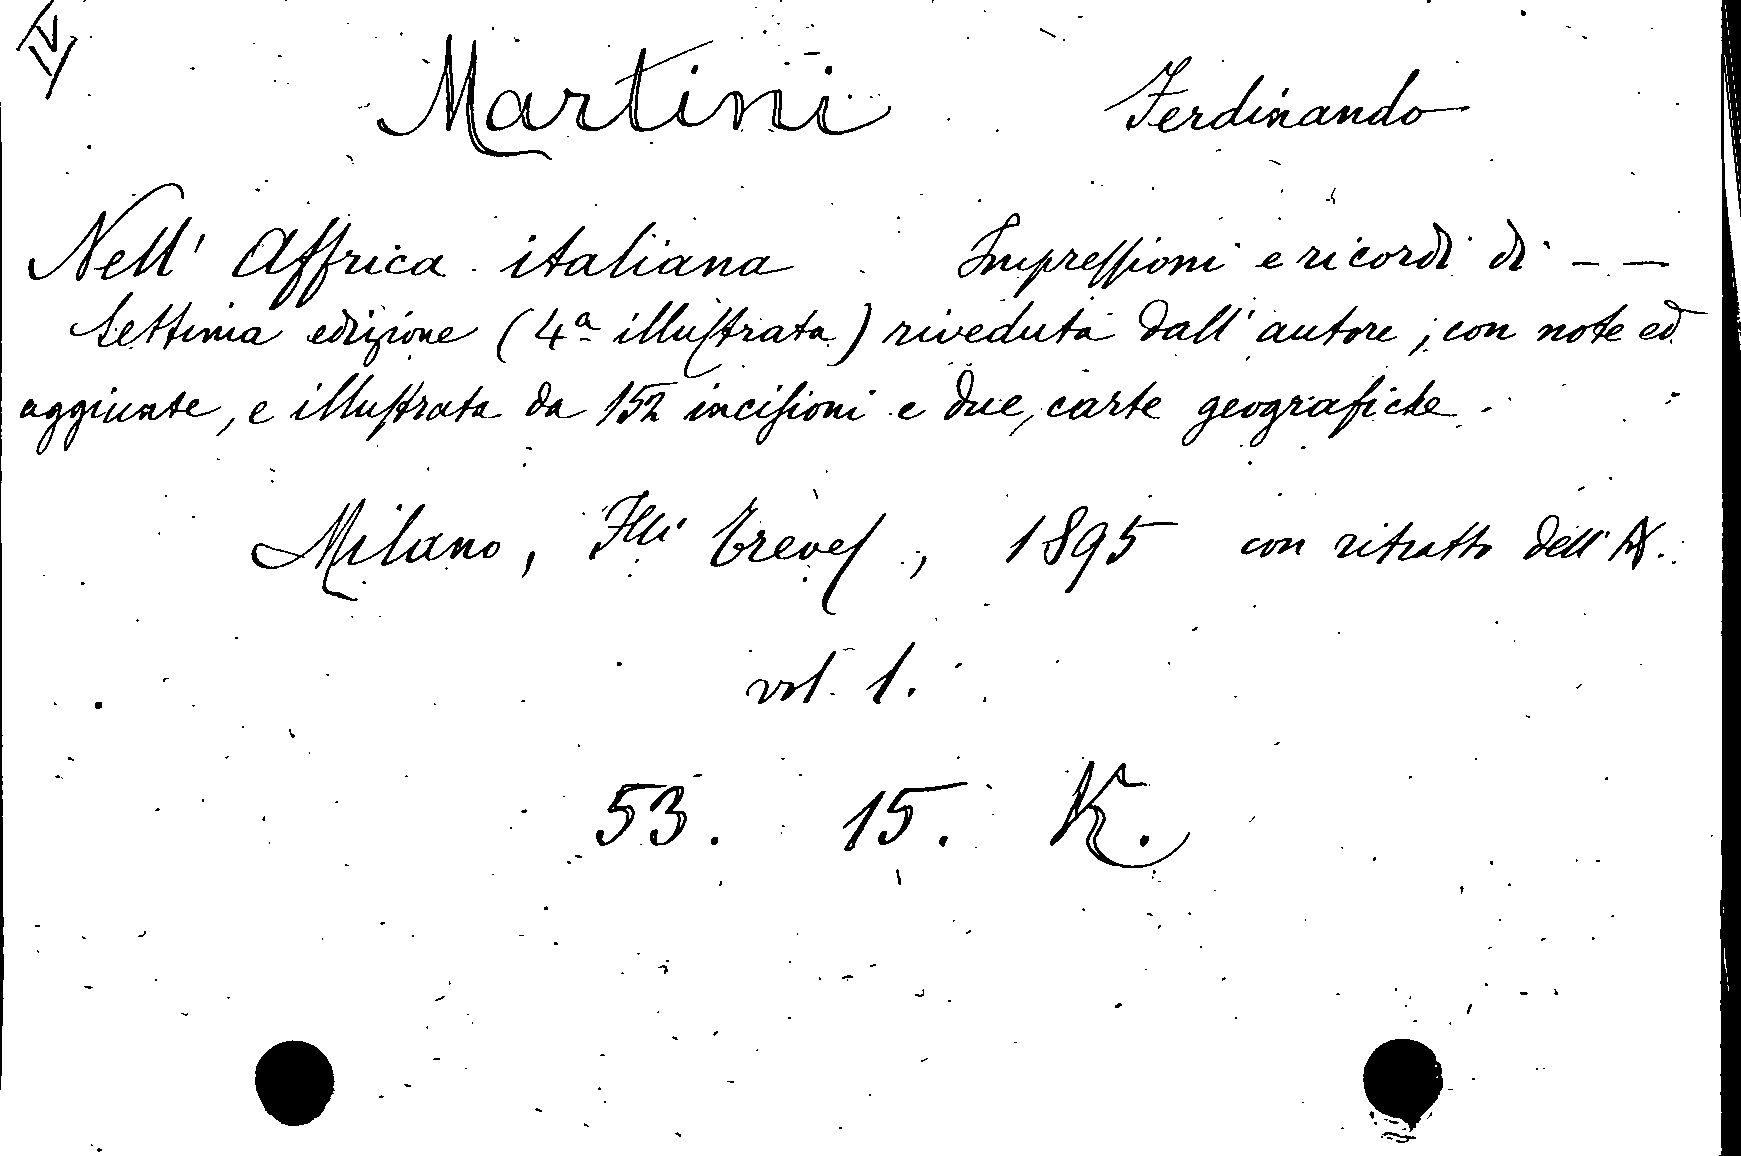 IV
Martini Ferdinando
Nell' Affrica italiana Impressioni e ricordi di — —
Settima edizione (4ª illustrata) riveduta dall'autore, con note ed
aggiunte, e illustrata da 152 incisioni e due carte geografiche.
Milano, Flli Treves, 1895 con ritratto dell'A.
vol. 1.
53. 15. K.